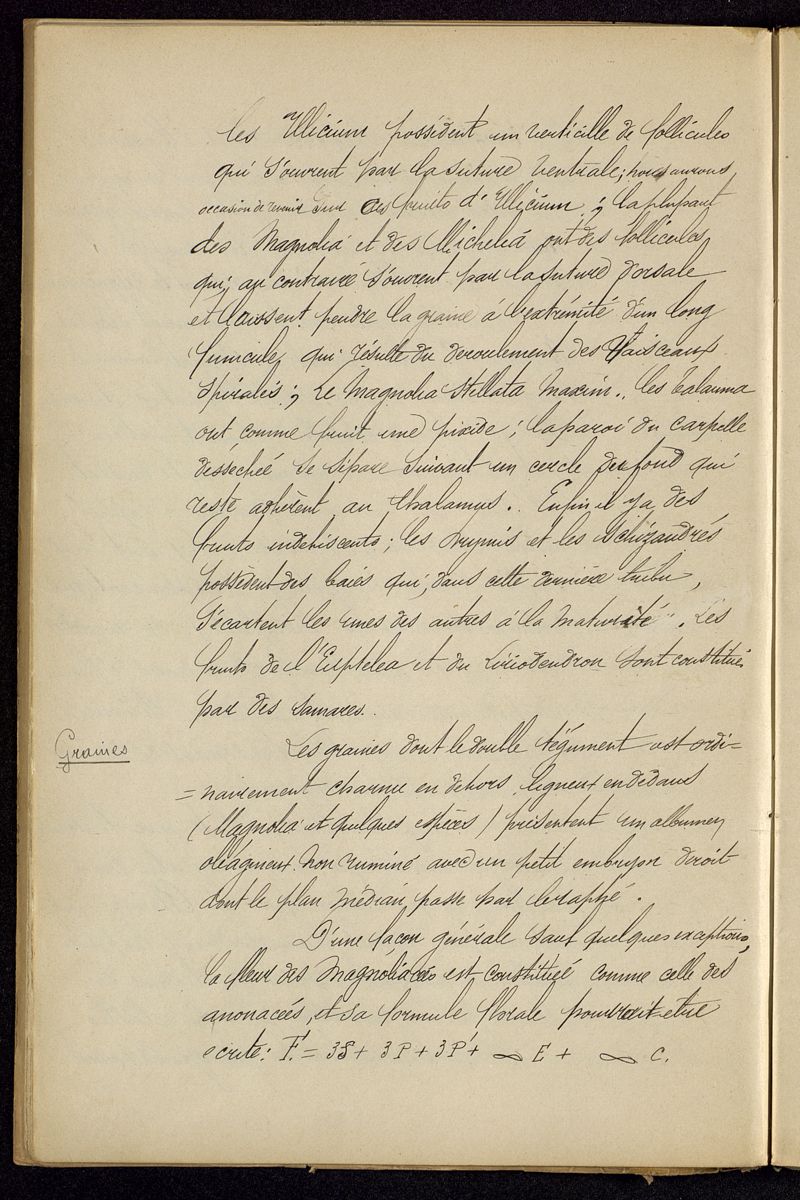 les Illicium possèdent un verticille de follicules
qui s'ouvrent par la suture ventrale; nous aurons
occasion de revenir sur ces fruits d'Illicium; la plupart
des Magnolia et des Michelia ont des follicules
qui, au contraire s'ouvrent par la suture dorsale
et laissent pendre la graine à l'extrémité d'un long
funicule, qui résulte du déroulement des faisceaux
spiralés; le Magnolia Stellata Maxim., les Talauma
ont comme fruit une pixide; la paroi du carpelle
desséchée se sépare suivant un cercle du fond qui
reste adhérent au thalamus.. Enfin il y a, des
fruits indéhiscents; les Drymis et les Schizandrés
possèdent des baies qui, dans cette dernière tribu,
s'écartent les unes des autres à la maturité. Les
fruits de l'Euptelea et du Liriodendron sont constitués
par des samares..
Graines
Les graines dont le double tégument est ordi=
=nairement charnu en dehors, ligneux en dedans
(Magnolia et quelques espèces) présentent un albumen
oléagineux non ruminé avec un petit embryon droit
dont le plan médian passe par le raphé.
D'une façon générale sauf quelques exceptions,
la fleur des Magnoliacées est constituée comme celle des
anonacées, et sa formule florale pourrait être
écrite: F. = 3S + 3P + 3P' + ∞ E + ∞ C.